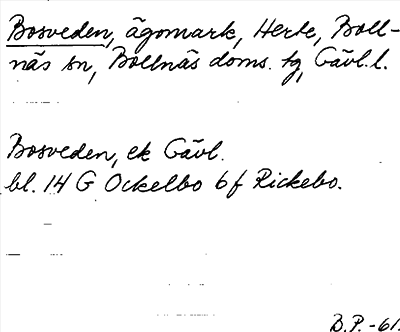 Bosveden, ägomark, Herte, Boll-
näs sn, Bollnäs doms. tg, Gävl. l.
Bosveden, ek Gävl.
bl. 14 G Ockelbo 6 f Rickebo.
B.P. -61.